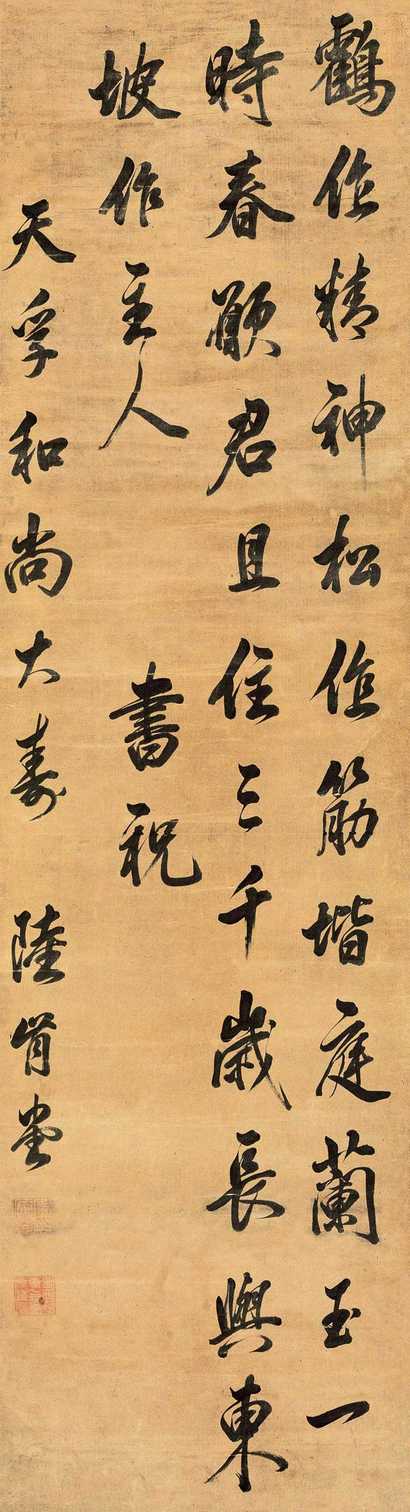 鶴作精神松作筋堦庭蘭玉一
時春願君且住三千歲長與東
坡作主人
書祝
天孚和尚大壽
陸肯堂